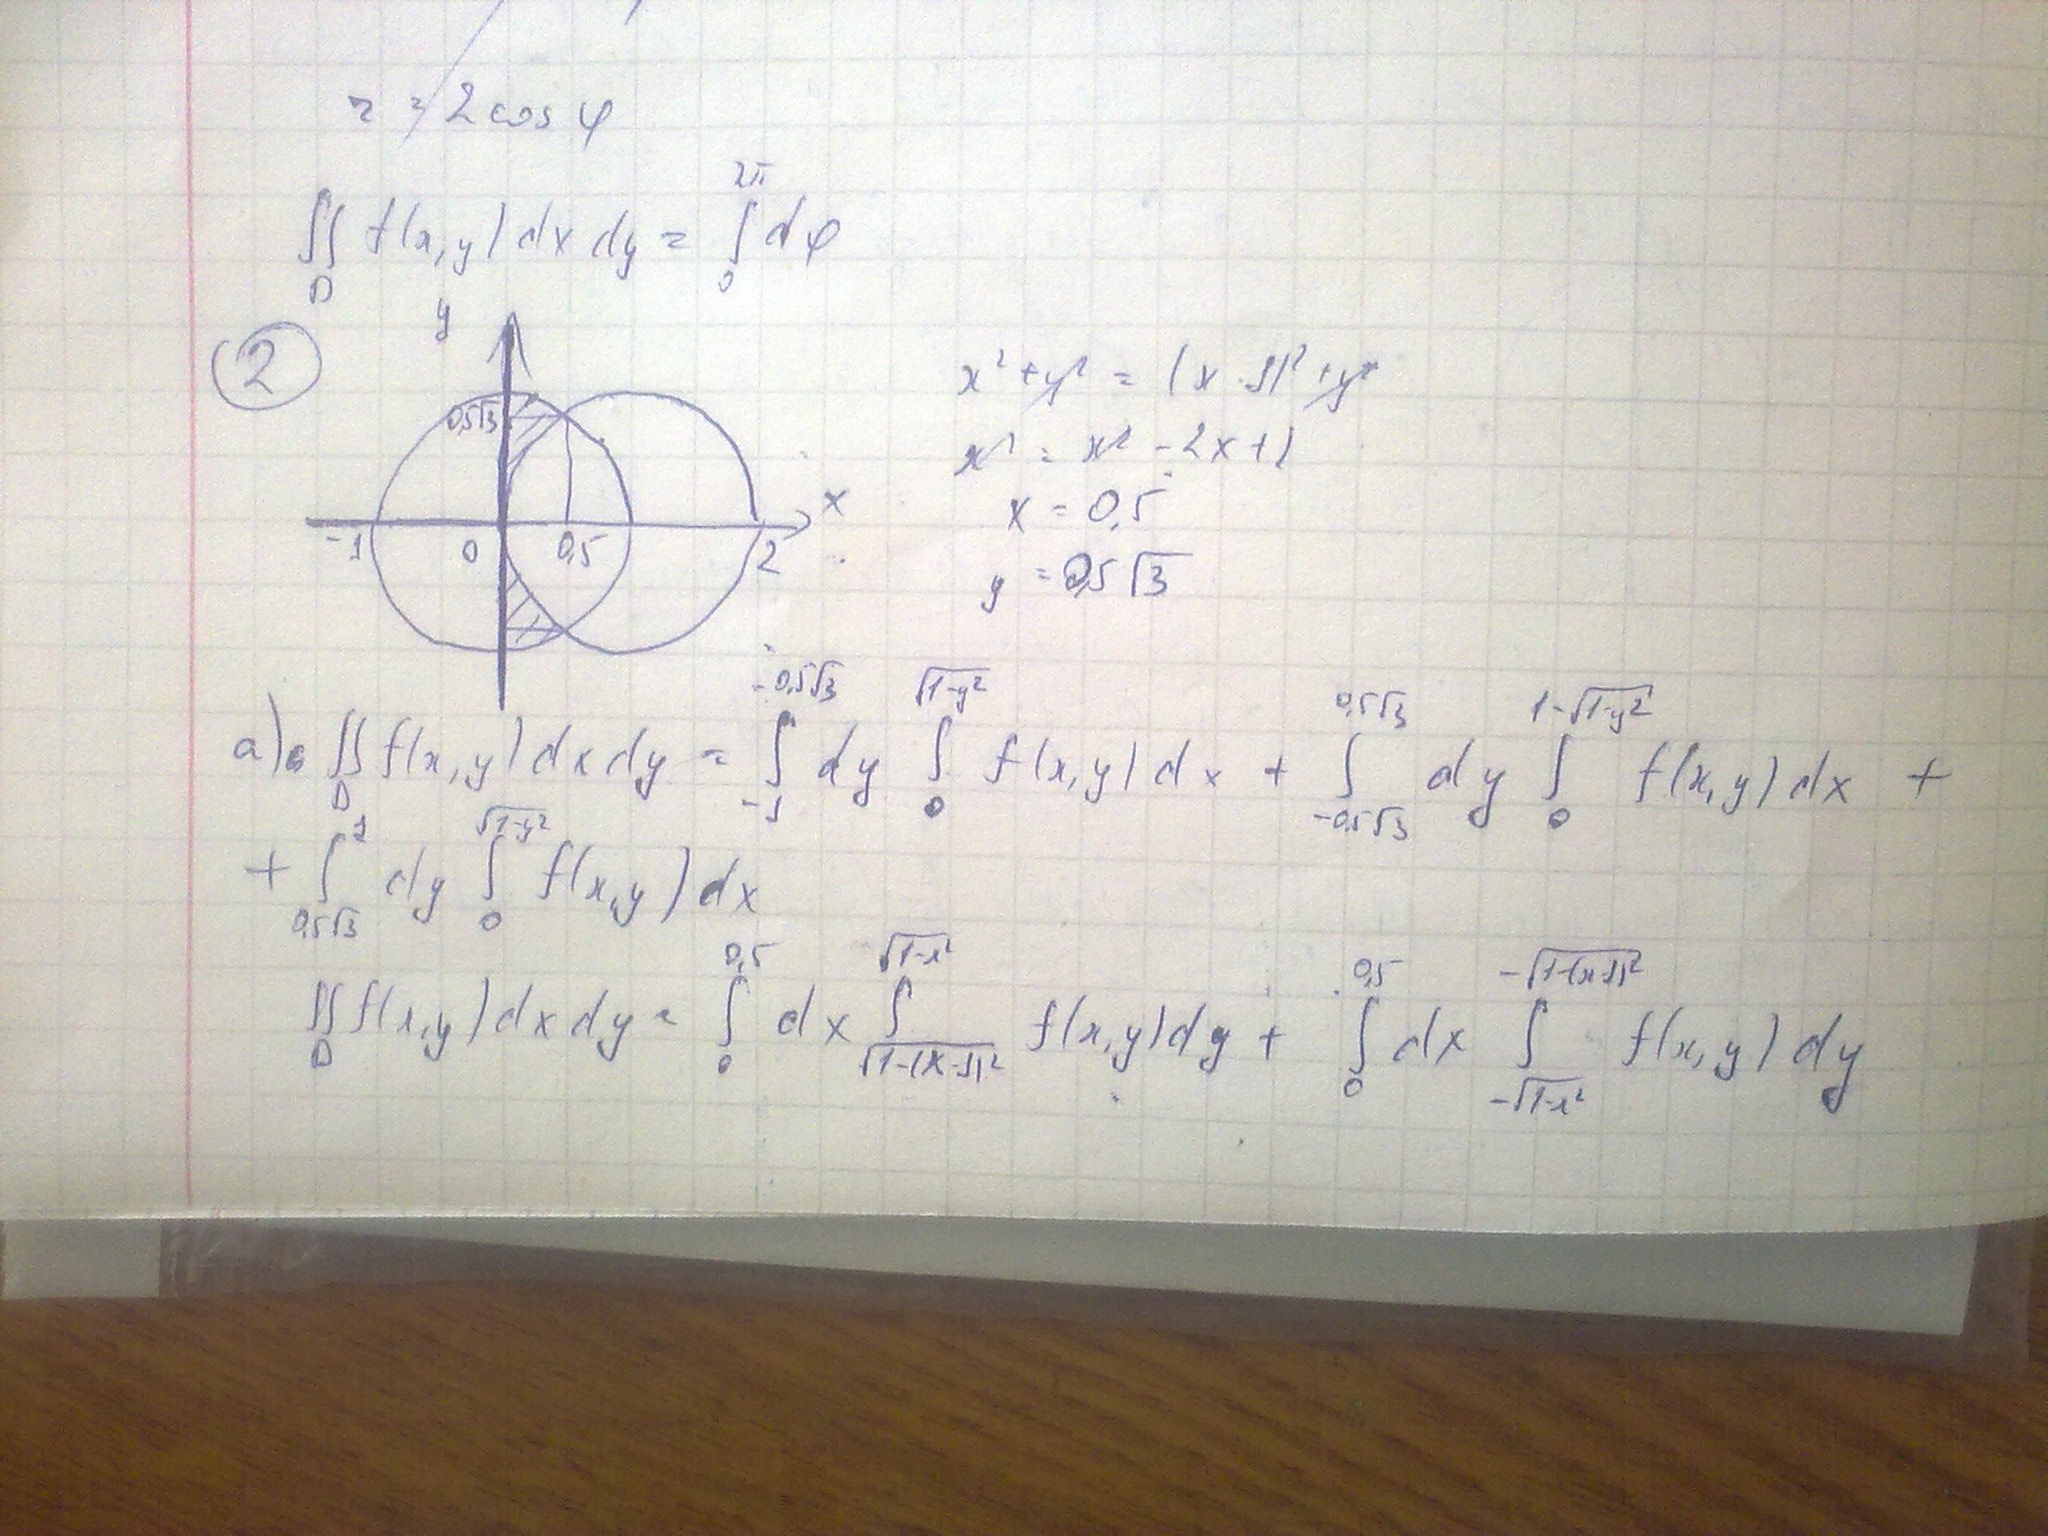 r = 2 cos φ
∬_D f(x,y) dx dy = ∫_0^{2π} dφ
2
y
0,5√3
x
-1 0 0,5 2
x² + y² = (x-1)² + y²
x² = x² - 2x + 1
x = 0,5
y = 0,5√3
a) ∬_D f(x,y) dx dy = ∫_{-1}^{-0,5√3} dy ∫_0^{√(1-y²)} f(x,y) dx + ∫_{-0,5√3}^{0,5√3} dy ∫_0^{1-√(1-y²)} f(x,y) dx +
+ ∫_{0,5√3}^{1} dy ∫_0^{√(1-y²)} f(x,y) dx
∬_D f(x,y) dx dy = ∫_0^{0,5} dx ∫_{√(1-(x-1)²)}^{√(1-x²)} f(x,y) dy + ∫_0^{0,5} dx ∫_{-√(1-x²)}^{-√(1-(x-1)²)} f(x,y) dy